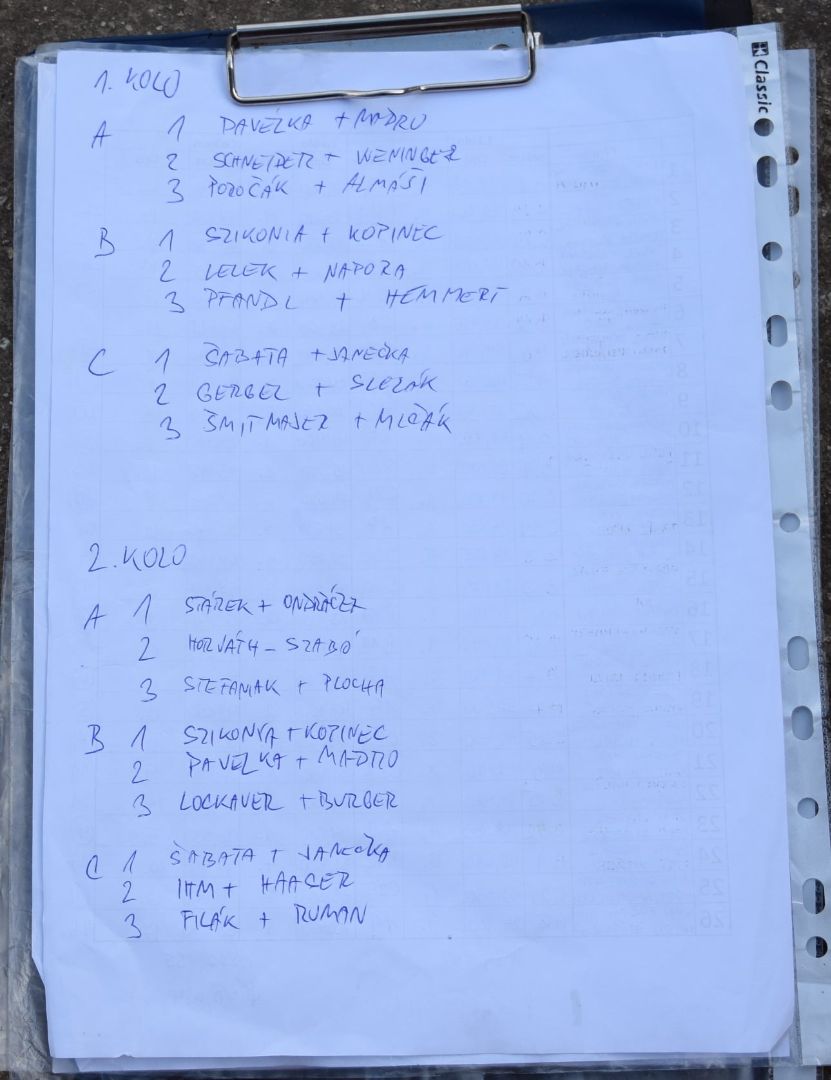 Classic
1. KOLO
A 1 PAVELKA + MADRO
2 SCHNEIDER + WENINGER
3 POROČÁK + ALMÁŠI
B 1 SZIKONIA + KOPINEC
2 LELEK + NAPORA
3 PFANDL + HEMMERT
C 1 ŠABATA + JANEČKA
2 GERGEL + SLEZÁK
3 ŠMITMAJER + MLČÁK
2. KOLO
A 1 STÁREK + ONDRÁČEK
2 HORVÁTH - SZABÓ
3 STEFANIAK + PLOCHA
B 1 SZIKONYA + KOPINEC
2 PAVELKA + MADRO
3 LOCKAUER + BURGER
C 1 ŠABATA + JANEČKA
2 IHM + HAASER
3 FILÁK + RUMAN